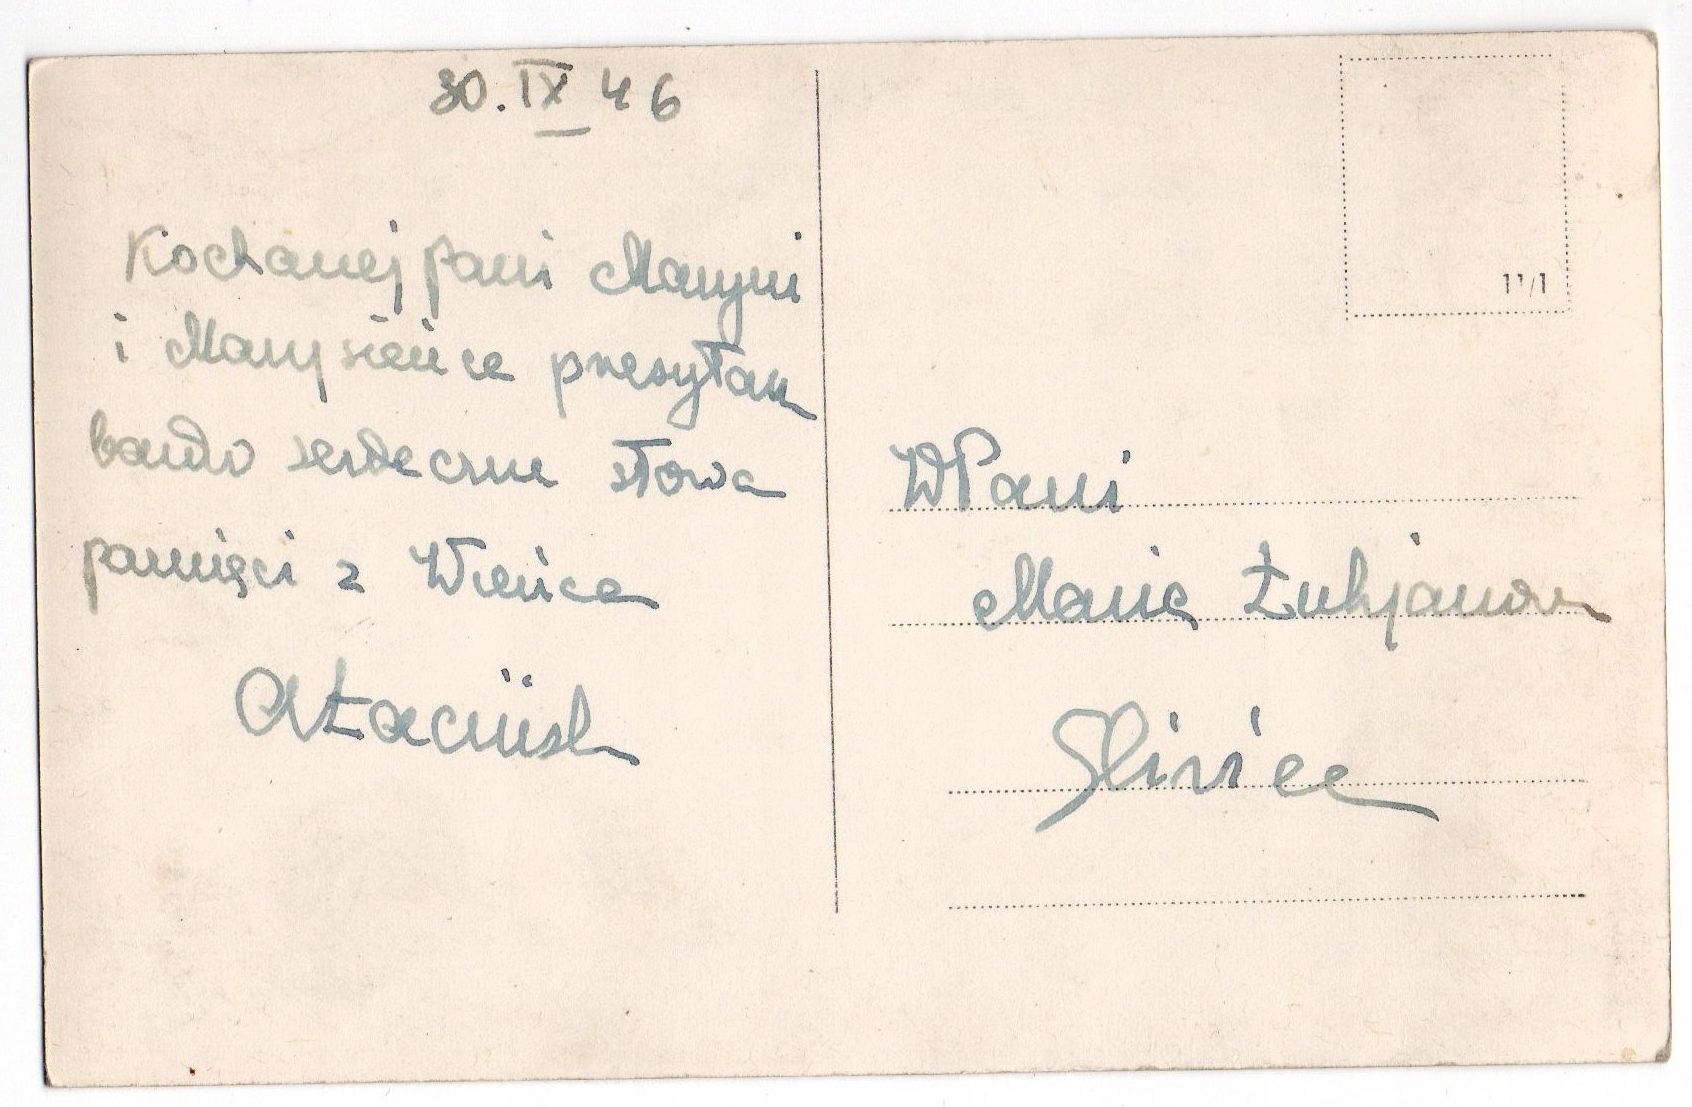 30.IX 46
Kochanej pani Maryni
i Marysieńce przesyłam
bardzo serdeczne słowa
pamięci z Wieńca
11/1
WPani
Maria
Gliwice